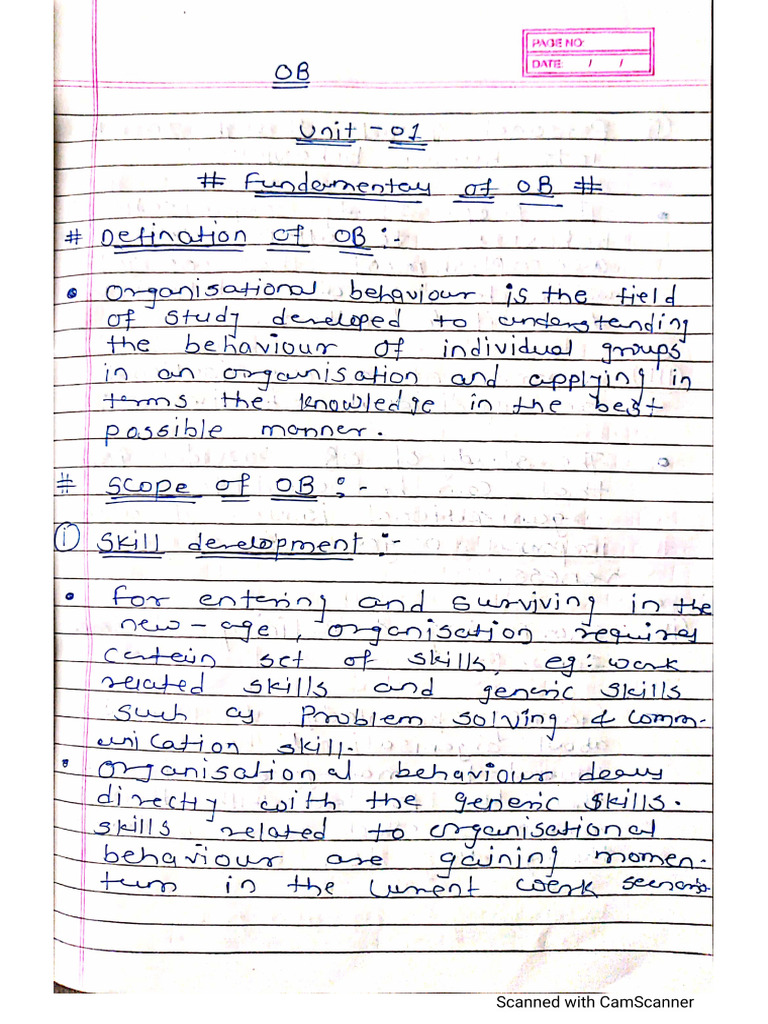 PAGE NO:
DATE: / /
OB
Unit - 01
# Fundamentals of OB #
# Defination of OB :-
• Organisational behaviour is the field
of study developed to understanding
the behaviour of individual groups
in an organisation and applying in
terms the knowledge in the best
possible manner.
# Scope of OB :-
(i) Skill development :-
• For entering and surviving in the
new-age, organisation requires
certain set of skills, eg: work
related skills and generic skills
such as Problem solving & comm-
unication skill.
• Organisational behaviour deals
directly with the generic skills.
skills related to organisational
behaviour are gaining momen-
tum in the current work scenario.
Scanned with CamScanner